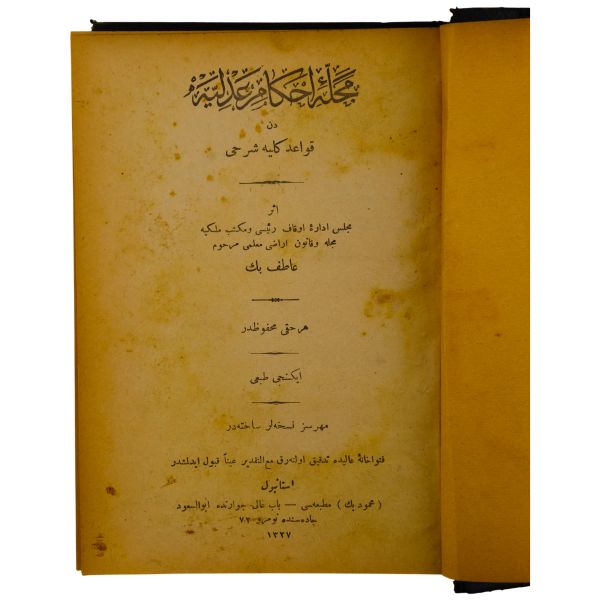 مجلۀ احكام عدليه
دن
قواعد كليه شرحى
اثر
مجلس ادارۀ اوقاف رئيسى و مكتب ملكيه
مجله و قانون اراضى معلمى مرحوم
عاطف بك
هر حقى محفوظدر
ايكنجى طبعى
مهرسز نسخه‌لر ساخته‌در
فتواخانۀ عاليده تدقيق اولنه‌رق مع التقدير عيناً قبول ايدلمشدر
استانبول
( محمود بك ) مطبعه‌سى — باب عالى جوارنده ابوالسعود
جاده‌سنده نومرو ٧٢
١٣٢٧